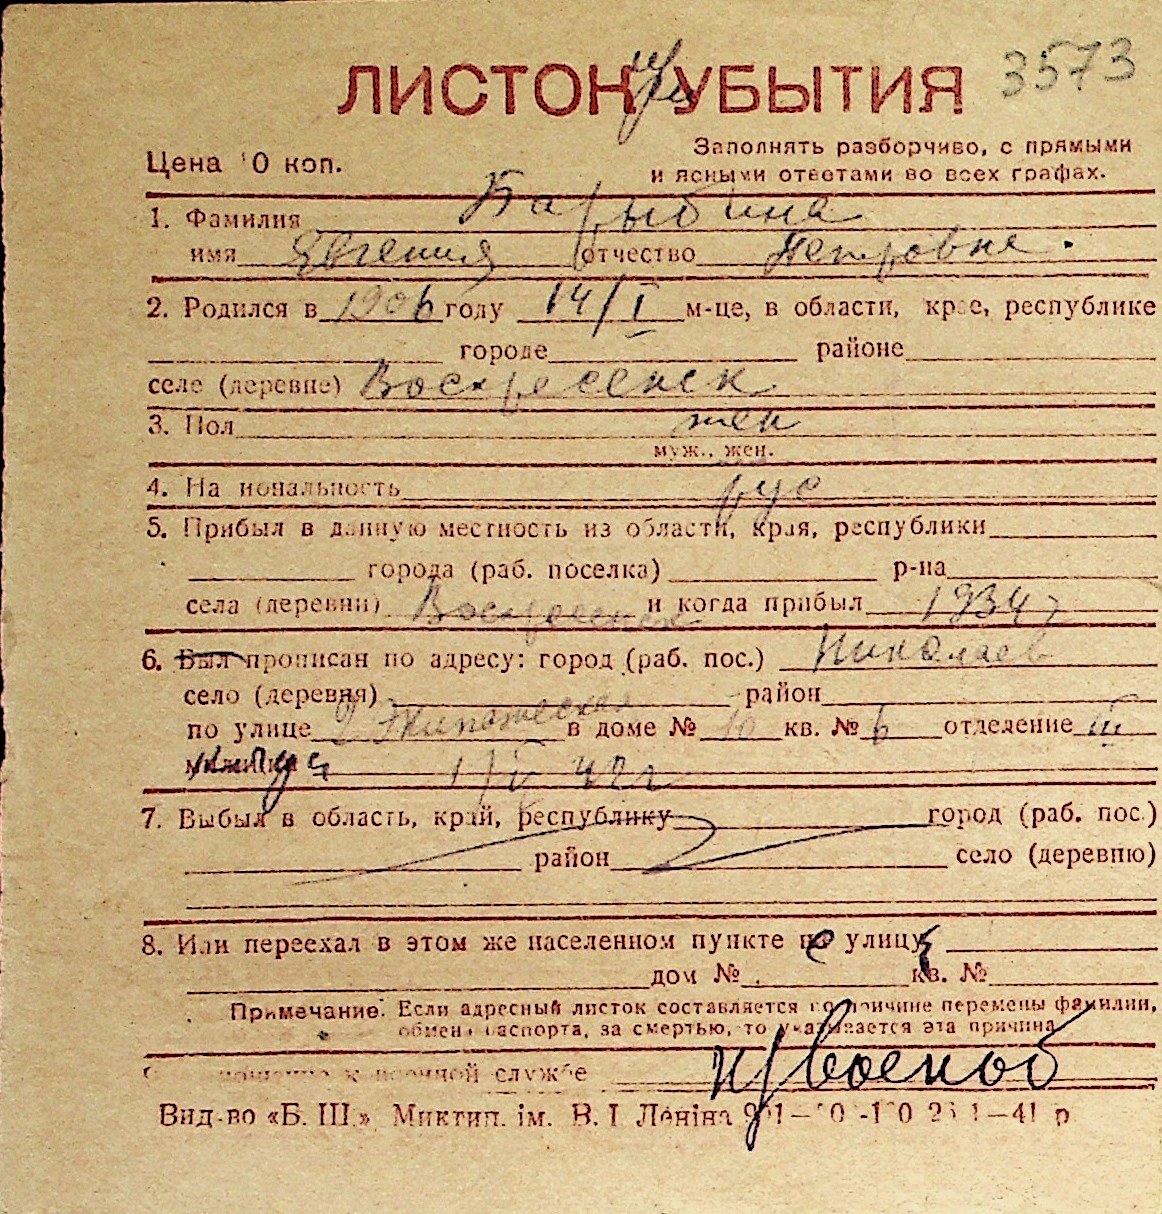 ЛИСТОК УБЫТИЯ 3573
Цена 10 коп.
Заполнять разборчиво, с прямыми
и ясными ответами во всех графах.
1. Фамилия Барыбина
имя Евгения отчество Петровна.
2. Родился в 1906 году 14/I м-це, в области, крае, республике
городе районе
селе (деревне) Воскресенск
3. Пол жен
муж., жен.
4. Национальность рус
5. Прибыл в данную местность из области, края, республики
города (раб. поселка) р-на
села (деревни) Воскресенск и когда прибыл 1934 г
6. Был прописан по адресу: город (раб. пос.) Николаев
село (деревня) район
по улице 2 Экипажеская в доме № 10 кв. № 6 отделение III
милиции 1/V 42 г
7. Выбыл в область, край, республику город (раб. пос.)
район село (деревню)
8. Или переехал в этом же населенном пункте на улицу
дом № кв. №
Примечание. Если адресный листок составляется по причине перемены фамилии,
обмена паспорта, за смертью, то указывается эта причина
к военной службе
Вид-во «Б. Ш.» Миктип. ім. В. І Леніна